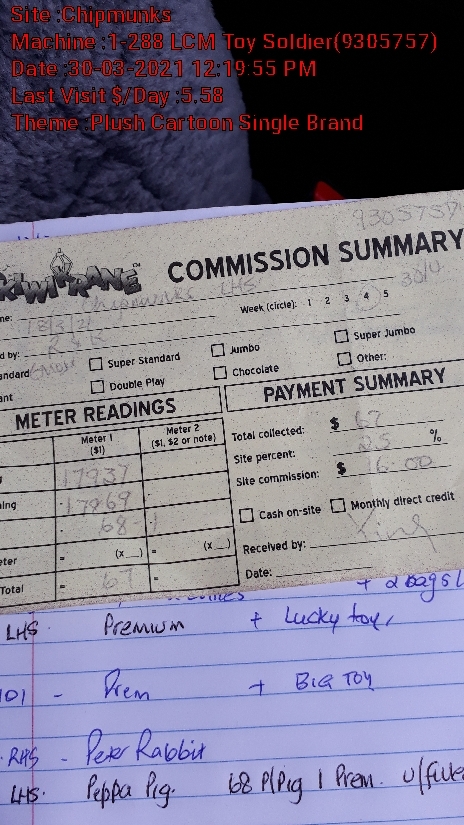 Site :Chipmunks
Machine :1-288 LCM Toy Soldier(9305757)
Date :30-03-2021 12:19:55 PM
Last Visit $/Day :5.58
Theme :Plush Cartoon Single Brand
KIWIKRANE™
COMMISSION SUMMARY
me: Chipmunks LHS
Week (circle): 1 2 3 4 5
d by:
andard
Super Standard
Jumbo
Super Jumbo
ant
Double Play
Chocolate
Other:
METER READINGS
PAYMENT SUMMARY
Meter 1 ($1)
Meter 2 ($1, $2 or note)
Total collected: $ 67
Site percent: 25 %
Site commission: $ 16.00
17937
ing 17869
68 -1
eter = (x__) = (x__)
Total = 67 =
Cash on-site
Monthly direct credit
Received by:
Date:
+ 2 bags
LHS. Premium + Lucky toy,
101 - Prem + BIG TOY
RHS - Peter Rabbit
LHS. Peppa Pig. 68 P/Pig 1 Prem.